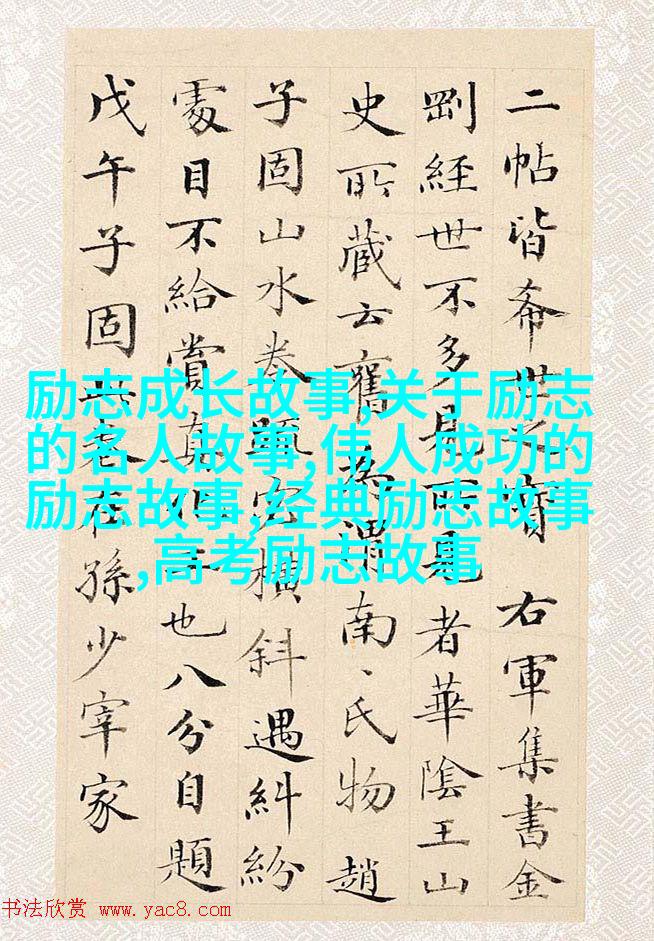 二帖皆希世之寶 右軍集書金
剛經世不多見所見者華陰王山
史所藏云舊為渭南、氏物趙
子固山水卷題 橫斜遇糾紛
處目不給賞真 也八分自題
戊午子固 卷在孫少宰家
励志成长故事,关于励志
的名人故事,伟人成功的
励志故事,经典励志故事
,高考励志故事
书法欣赏 www.yac8.com